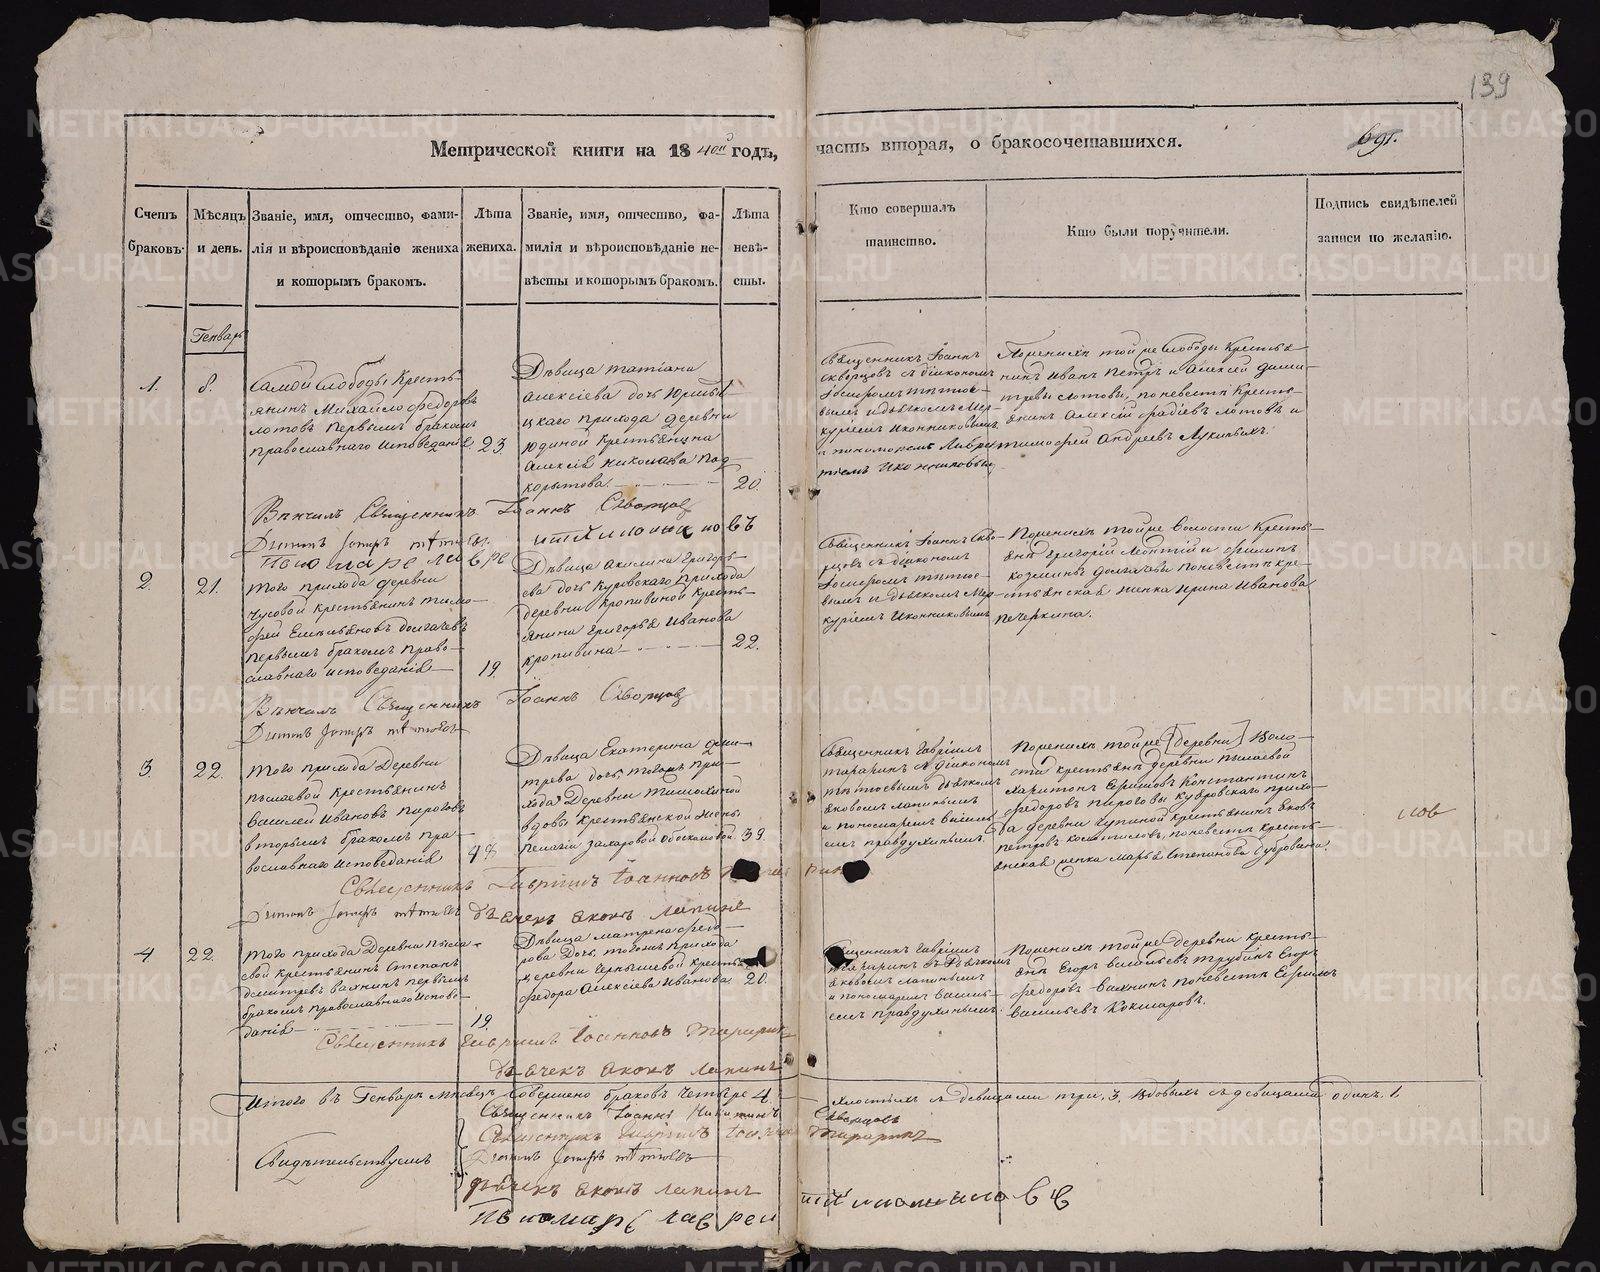 139
Метрической книги на 1840й годъ, часть вторая, о бракосочетавшихся.
691.
Счетъ браковъ.
Мѣсяцъ и день.
Званіе, имя, отчество, фами-
лія и вѣроисповѣданіе жениха
и которымъ бракомъ.
Лѣта
жениха.
Званіе, имя, отчество, фа-
милія и вѣроисповѣданіе не-
вѣсты и которымъ бракомъ.
Лѣта
невѣ-
сты.
Кто совершалъ
таинство.
Кто были поручители.
Подпись свидѣтелей
записи по желанію.
Генварь
1.
8.
Самой слободы кресть-
янинъ Михайло Федоровъ
Лотовъ первымъ бракомъ
православнаго исповеданія.
23.
Дѣвица Татіана
Алексіева дочь
цкаго прихода деревни
Юдиной крестьянина
Алексія Николаева Под-
корытова.
20.
Священникъ Іоаннъ
Скворцовъ съ діякономъ
вымъ и дьячкомъ Мер-
куріемъ Иконниковымъ
и пономаремъ Лавре-
Иконниковым
По женихѣ той же слободы кресть-
янинъ Иванъ Петръ и Алексей Дми-
тревы Лотовы, по невестѣ кресть-
янинъ Алексѣй Лотовъ и
Тимофей Андреевъ Лукиныхъ.
Вѣнчалъ Священникъ Іоаннъ Скворцовъ
2.
21.
Того прихода деревни
Чусовой крестьянинъ Тимо-
фей Емельяновъ Долгачевъ
первымъ бракомъ право-
славнаго исповеданія
19.
Дѣвица Акилина Григорь-
ева дочь Куровскаго прихода
деревни Кропивиной кресть-
янина Григорья Иванова
Кропивина
22.
Священникъ Іоаннъ Скво-
рцовъ съ діякономъ
вымъ и дьячкомъ Мер-
куріемъ Иконниковымъ
По женихѣ той же волости кресть-
янѣ Григорій Леонтій и Филипъ
Козмины Долгачевы по невестѣ кре-
стьянская женка Ирина Иванова
Печеркина.
Вѣнчалъ Священникъ Іоаннъ Скворцовъ
3.
22.
Того прихода деревни
Пылаевой крестьянинъ
Василей Ивановъ Пироговъ
вторымъ бракомъ пра-
вославнаго исповеданія
48
Дѣвица Екатерина Дми-
трева дочь, тогожъ при-
хода деревни
вдовы крестьянской жены
Пелагіи Захаровой
39.
Священникъ Гавріилъ
Тараринъ съ діякономъ
дьячкомъ
Яковомъ Лапинымъ
и пономаремъ Василь-
емъ Правдухинымъ
По женихѣ той же [деревни] воло-
сти крестьянѣ деревни Пылаевой
Харитонъ Ефимовъ Константинъ
Федоровъ Пироговы Кубровскаго прихо-
да деревни Чупиной крестьянинъ Яковъ
Петровъ Костылевъ, по невестѣ кресть-
янская женка Марья Степанова Дубровина.
Священникъ Гавріилъ Іоанновъ
дьячекъ Яковъ Лапинъ
4.
22.
Того прихода деревни Пыла-
евой крестьянинъ Степанъ
Дмитревъ Вахнинъ первымъ
бракомъ православнаго испове-
данія
19.
Дѣвица Матрена Федо-
рова дочь, тогожъ прихода
деревни Чернышевой кресть
Федора Алексіева Иванова
20.
Священникъ Гавріилъ
Тараринъ съ дьячкомъ
Яковомъ Лапинымъ
и пономаремъ Василь-
емъ Правдухинымъ
По женихѣ той же деревни кресть-
янѣ Егоръ Васильевъ Трубинъ Егоръ
Федоровъ Вахнинъ по невестѣ Ефимъ
Васильевъ Кокшаровъ.
Священникъ Гавріилъ Іоанновъ Тараринъ
дьячекъ Яковъ Лапинъ
Итого въ Генварѣ месяцѣ совершено браковъ четыре 4. холостыхъ съ девицами три, 3. вдовыхъ съ девицами одинъ. 1
Свидѣтельствуемъ
Священникъ Іоаннъ Никитинъ Скворцовъ
Священникъ Гавріилъ Тараринъ
дьячекъ Яковъ Лапинъ
METRIKI.GASO-URAL.RU